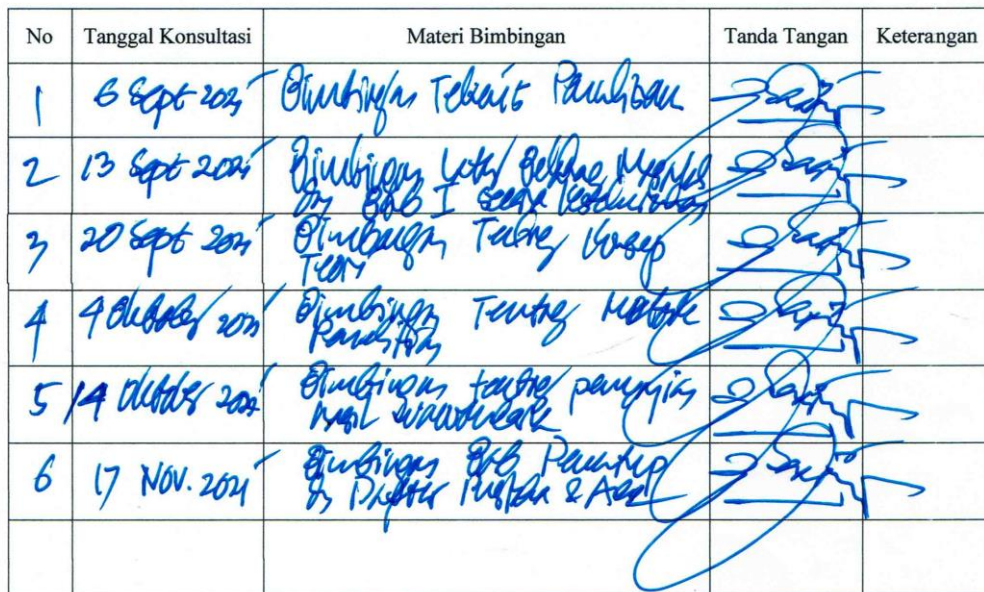 No Tanggal Konsultasi Materi Bimbingan Tanda Tangan Keterangan
1 6 Sept 2021 Bimbingan Teknis Penulisan
2 13 Sept 2021 Bimbingan Latar Belakang
BAB I secara
3 20 Sept 2021 Bimbingan Tentang Konsep
Teori
4 4 Oktober 2021 Bimbingan Tentang Metode
Penelitian
5 14 Oktober 2021 Bimbingan tentang penyajian
hasil
6 17 NOV. 2021 Bimbingan Bab Penutup
Daftar Pustaka &